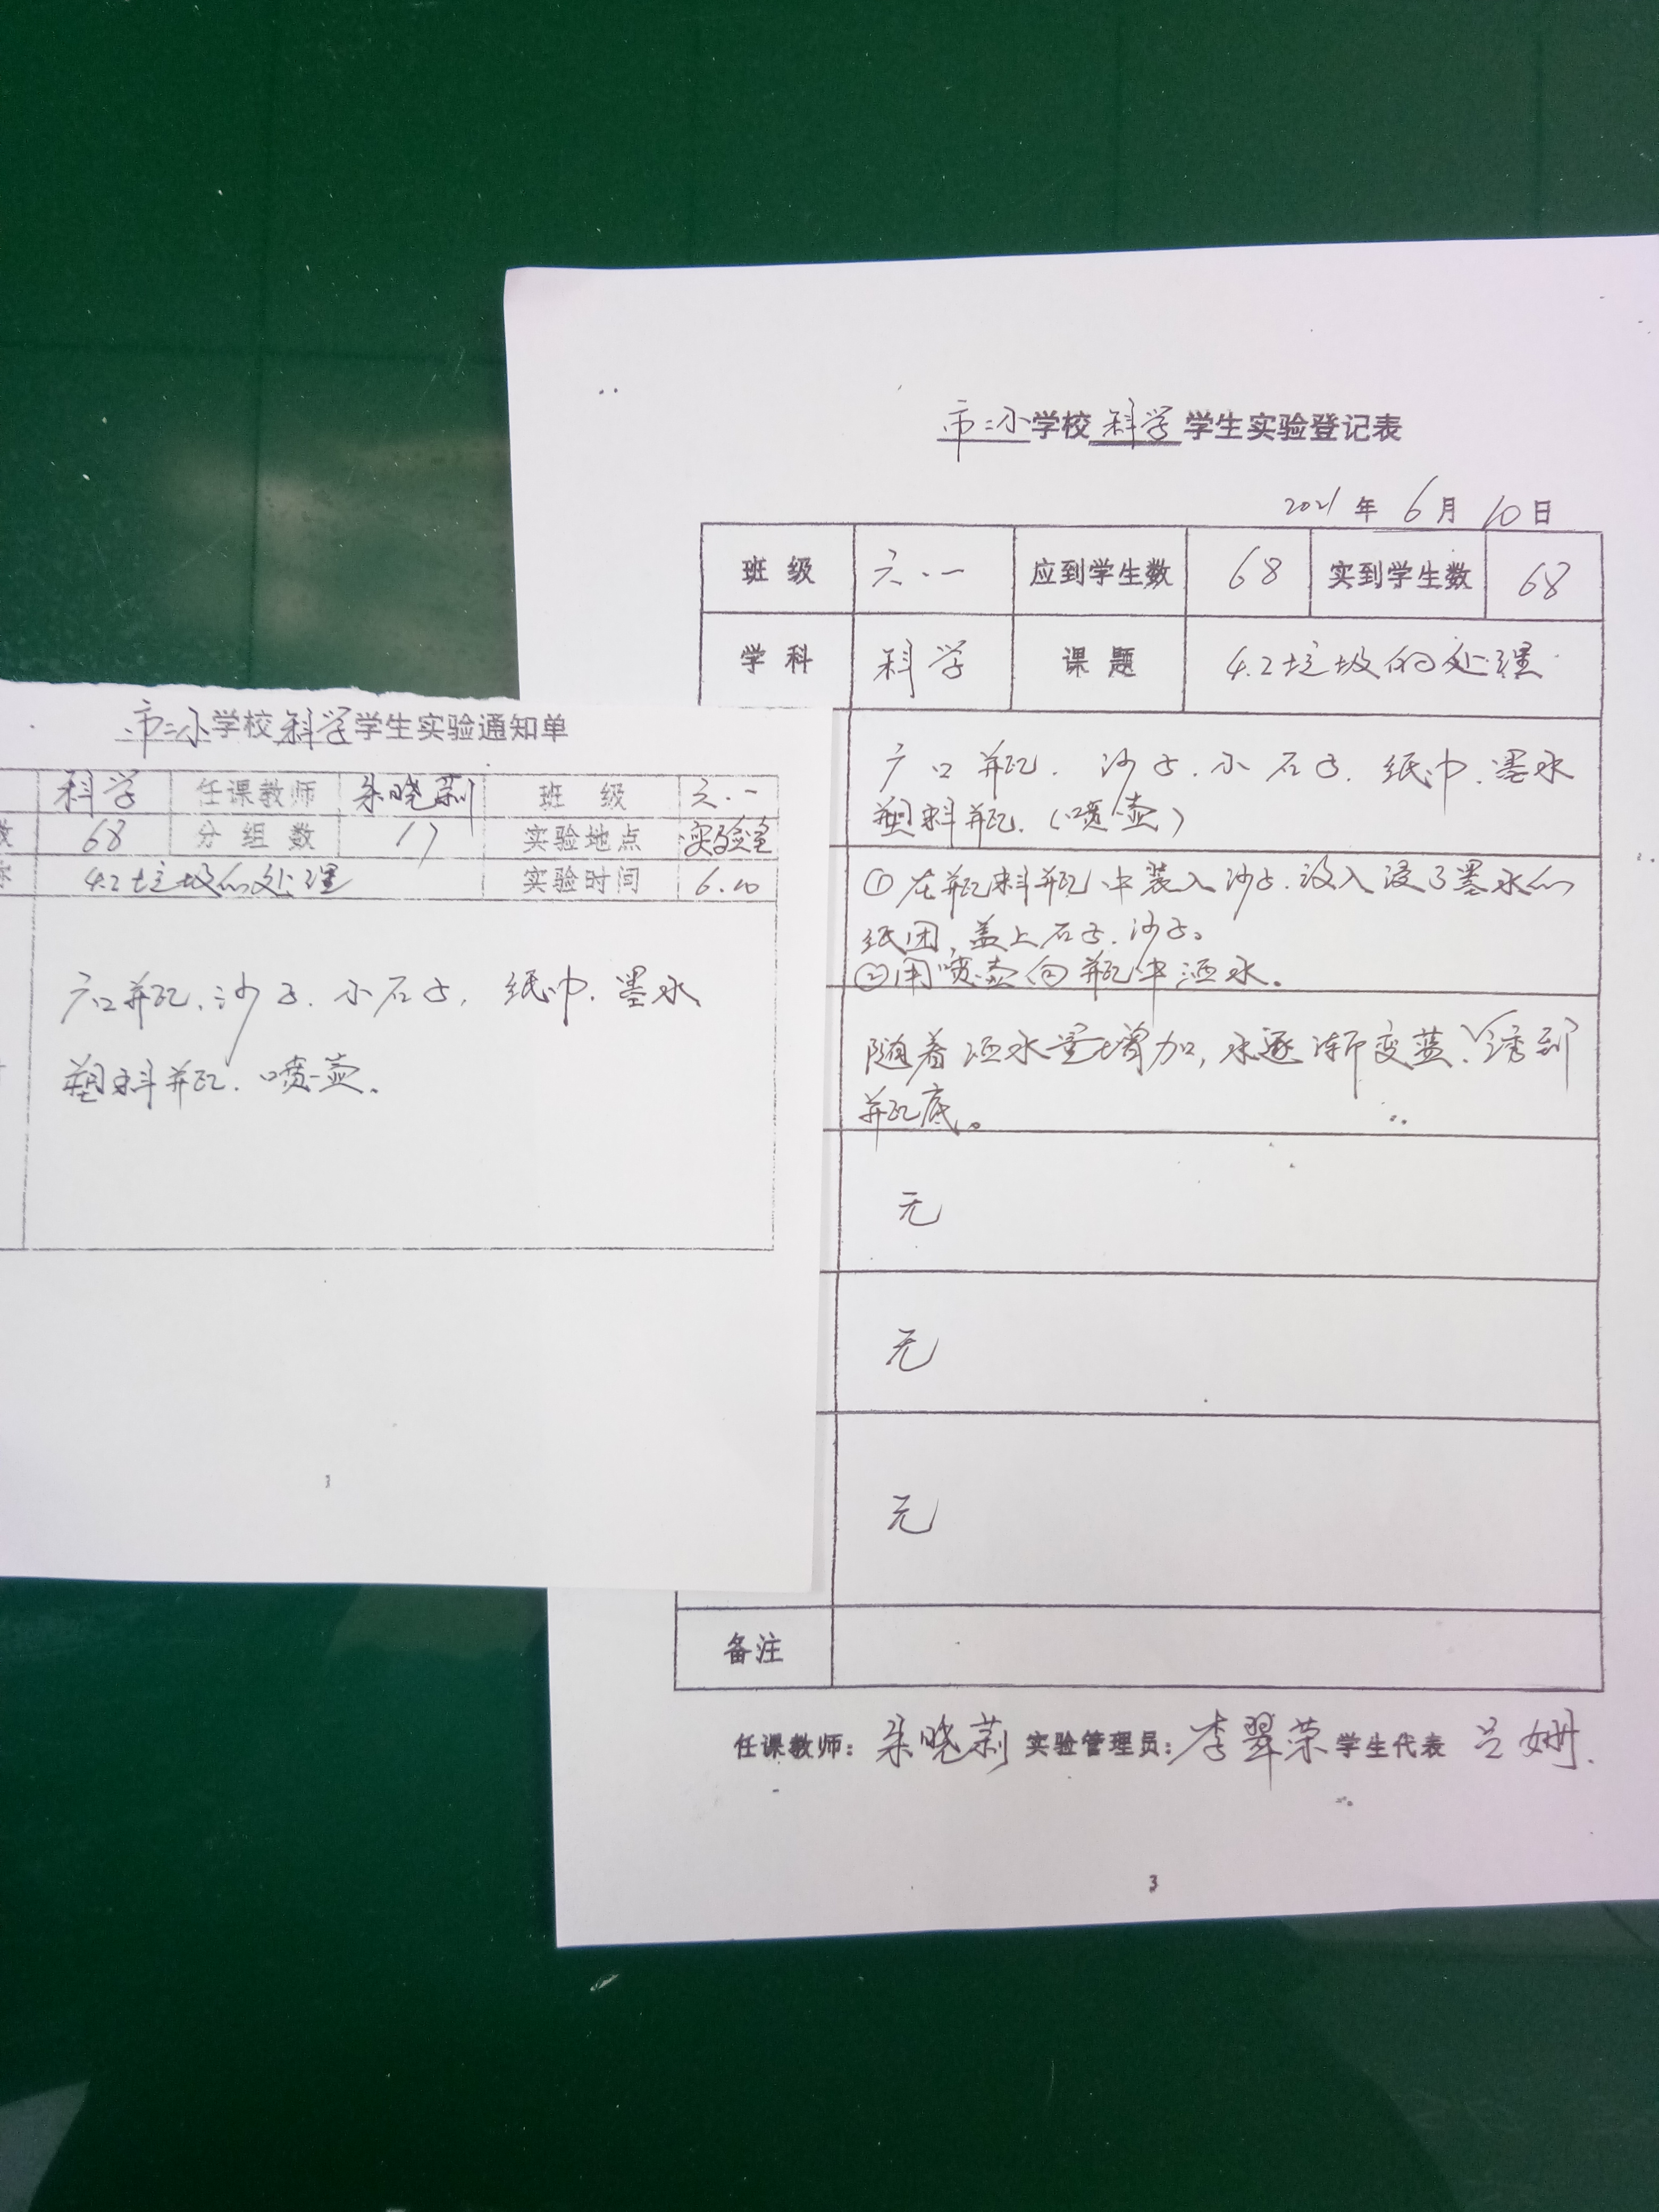 市二小学校科学学生实验登记表
2021年6月10日
班级 六.一 应到学生数 68 实到学生数 68
学科 科学 课题 4.2垃圾的处理
广口瓶.沙子.小石子.纸巾.墨水
塑料瓶.(喷壶)
①在瓶料瓶中装入沙子.放入浸了墨水的
纸团,盖上石子.沙子。
②用喷壶向瓶中洒水。
随着洒水量增加,水逐渐变蓝、透到
瓶底。
无
无
无
备注
任课教师:朱晓莉 实验管理员:李翠荣 学生代表 吕姗.
3
市二小学校科学学生实验通知单
科学 任课教师 朱晓莉 班级 六.一
数 68 分组数 17 实验地点 实验室
4.2垃圾的处理 实验时间 6.10
广口瓶.沙子.小石子,纸巾.墨水
塑料瓶.喷壶.
3